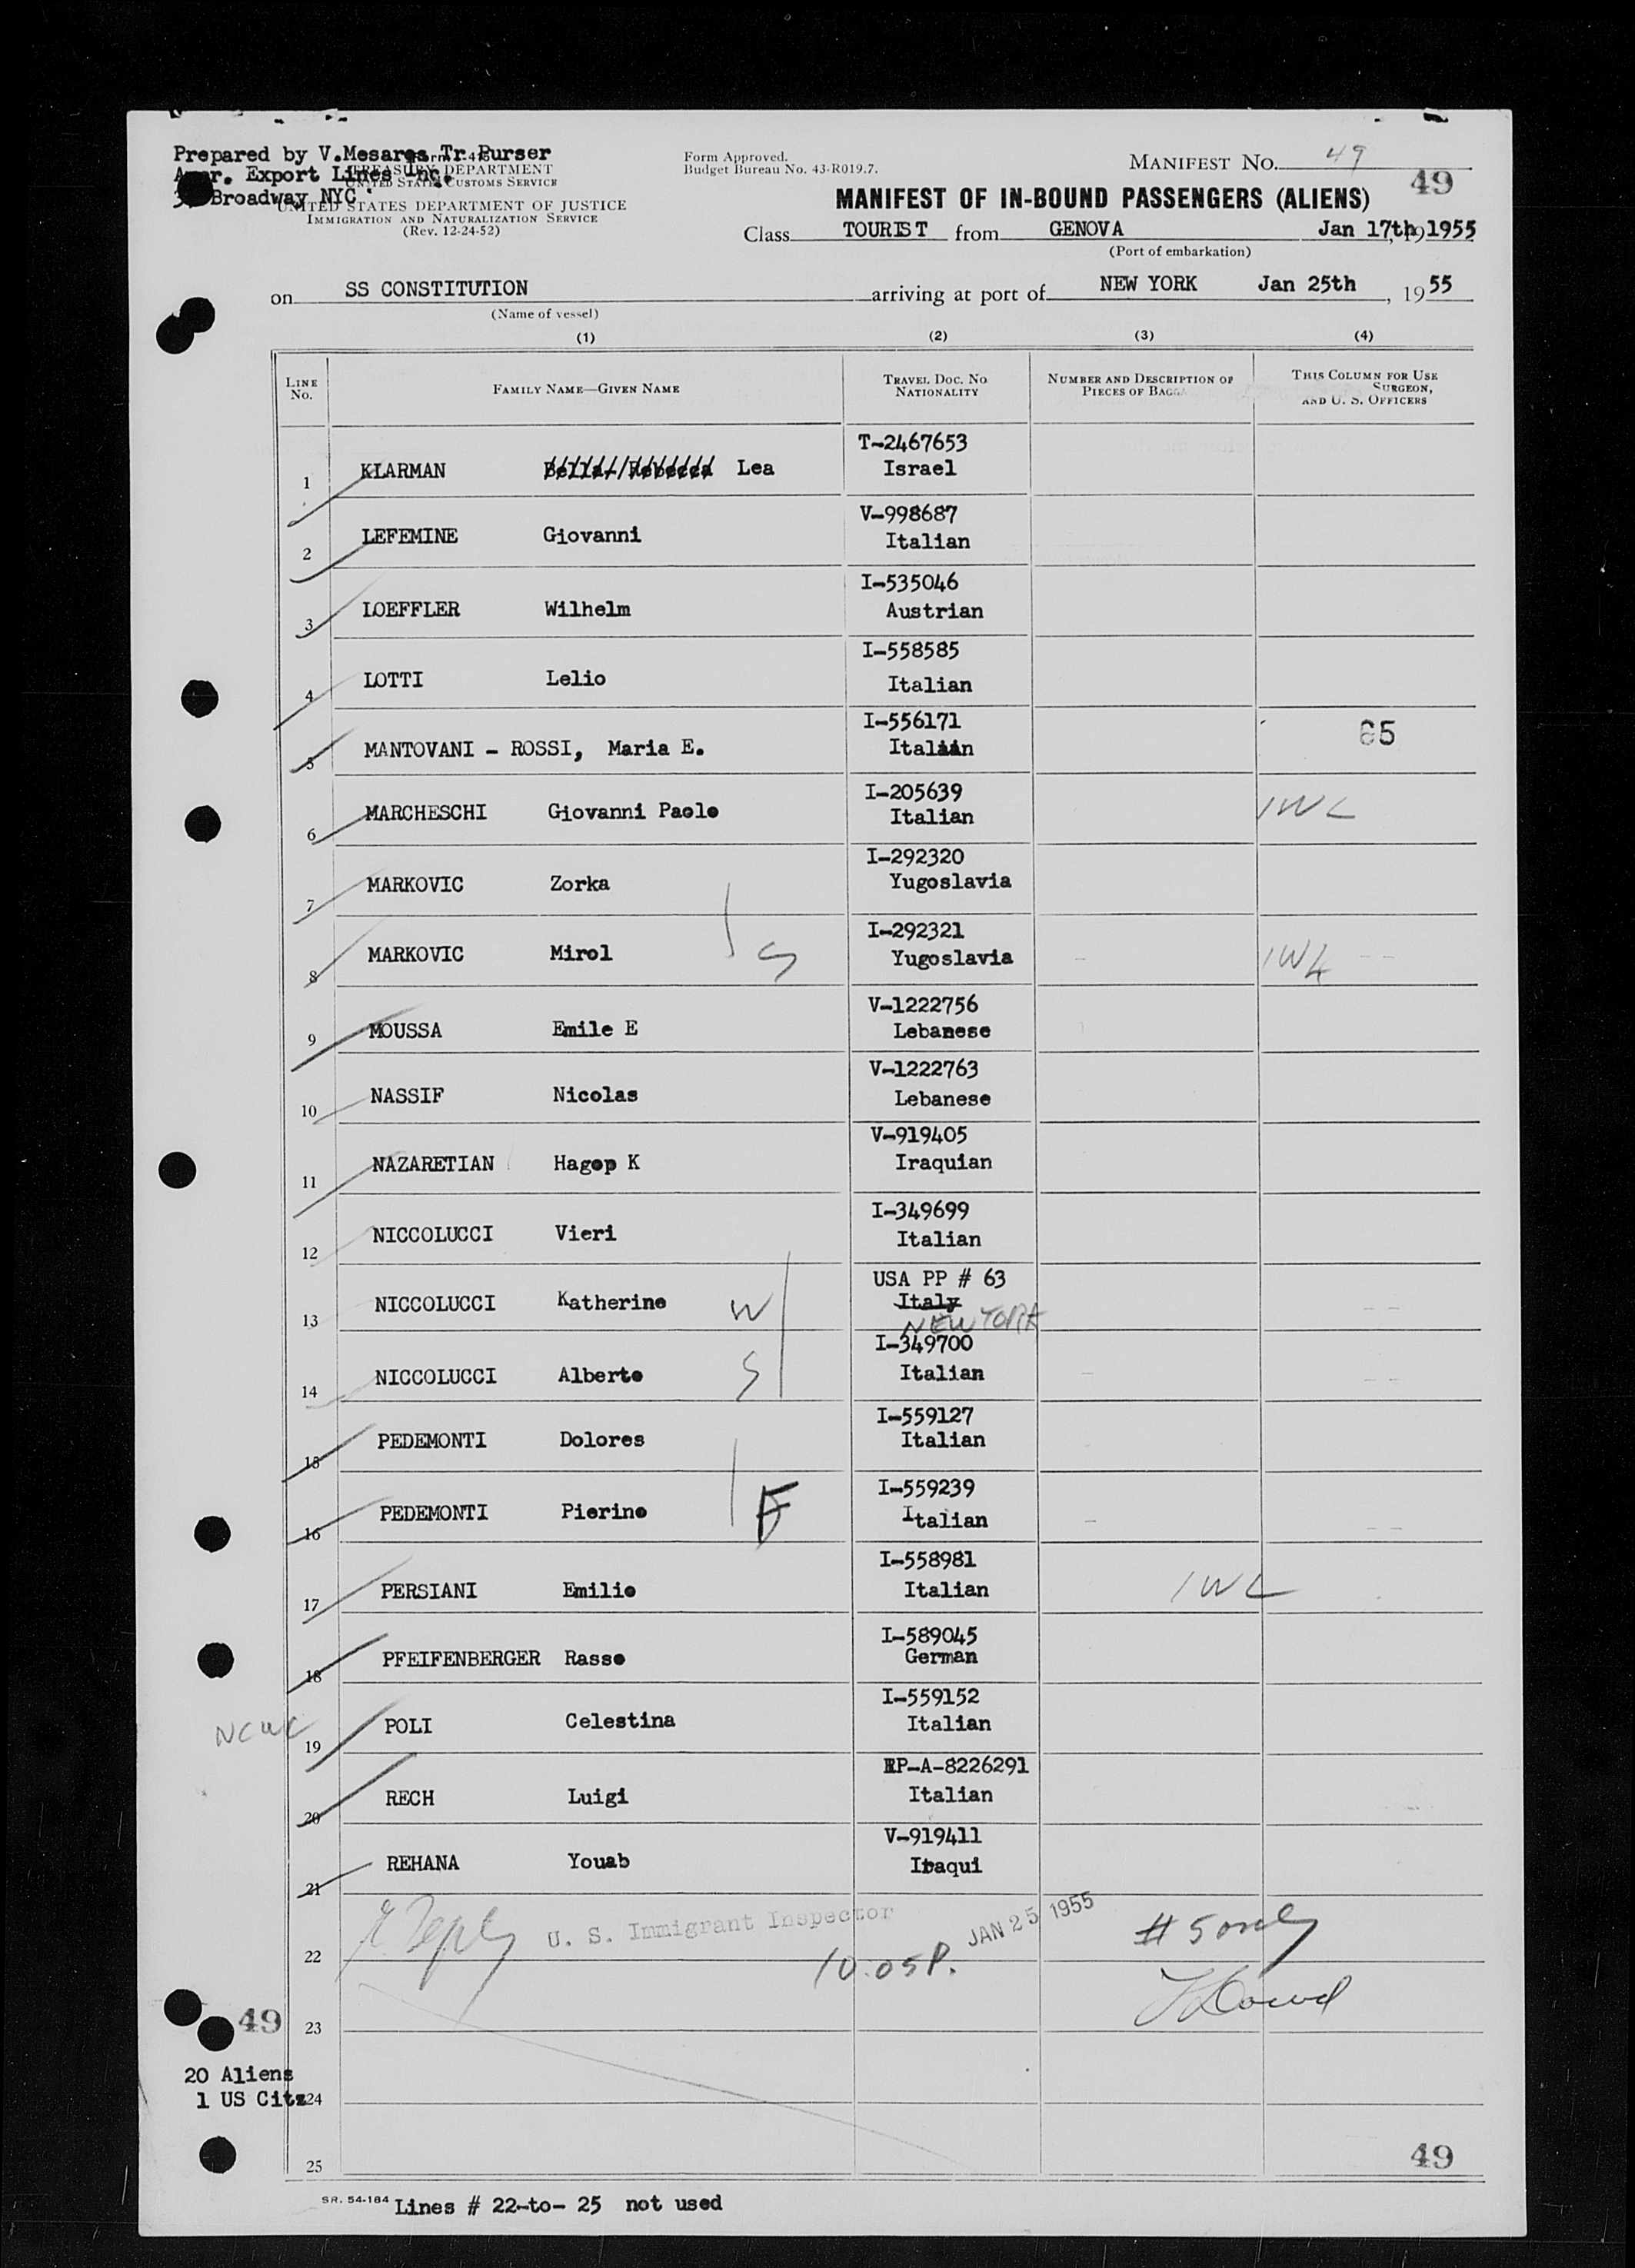 Prepared by V.Mesares Tr.Purser
Amer. Export Lines Inc.
Broadway NYC
TREASURY DEPARTMENT
UNITED STATES CUSTOMS SERVICE
UNITED STATES DEPARTMENT OF JUSTICE
IMMIGRATION AND NATURALIZATION SERVICE
(Rev. 12-24-52)
Form Approved.
Budget Bureau No. 43-R019.7.
MANIFEST NO. 49
49
MANIFEST OF IN-BOUND PASSENGERS (ALIENS)
Class TOURIST from GENOVA Jan 17th, 1955
(Port of embarkation)
on SS CONSTITUTION arriving at port of NEW YORK Jan 25th, 1955
(Name of vessel)
(1) (2) (3) (4)
LINE NO. FAMILY NAME—GIVEN NAME TRAVEL DOC. NO. NATIONALITY NUMBER AND DESCRIPTION OF PIECES OF BAGGA THIS COLUMN FOR USE SURGEON, AND U. S. OFFICERS
T-2467653
1 KLARMAN Bella/Rebecca Lea Israel
V-998687
2 LEFEMINE Giovanni Italian
I-535046
3 LOEFFLER Wilhelm Austrian
I-558585
4 LOTTI Lelio Italian
I-556171 65
5 MANTOVANI - ROSSI, Maria E. Italian
I-205639
6 MARCHESCHI Giovanni Paolo Italian 1WL
I-292320
7 MARKOVIC Zorka Yugoslavia
I-292321
8 MARKOVIC Mirol S Yugoslavia 1WL
V-1222756
9 MOUSSA Emile E Lebanese
V-1222763
10 NASSIF Nicolas Lebanese
V-919405
11 NAZARETIAN Hagop K Iraquian
I-349699
12 NICCOLUCCI Vieri Italian
USA PP # 63
13 NICCOLUCCI Katherine W Italy
NEW YORK
I-349700
14 NICCOLUCCI Alberto S Italian
I-559127
15 PEDEMONTI Dolores Italian
I-559239
16 PEDEMONTI Pierino F Italian
I-558981
17 PERSIANI Emilio Italian 1WL
I-589045
18 PFEIFENBERGER Rasso German
I-559152
NCWC 19 POLI Celestina Italian
RP-A-8226291
20 RECH Luigi Italian
V-919411
21 REHANA Youab Iraqui
U. S. Immigrant Inspector JAN 25 1955 # 5 only
22 10.05P.
49 23
20 Aliens
1 US Citz 24
25 49
SR. 54-184 Lines # 22-to- 25 not used